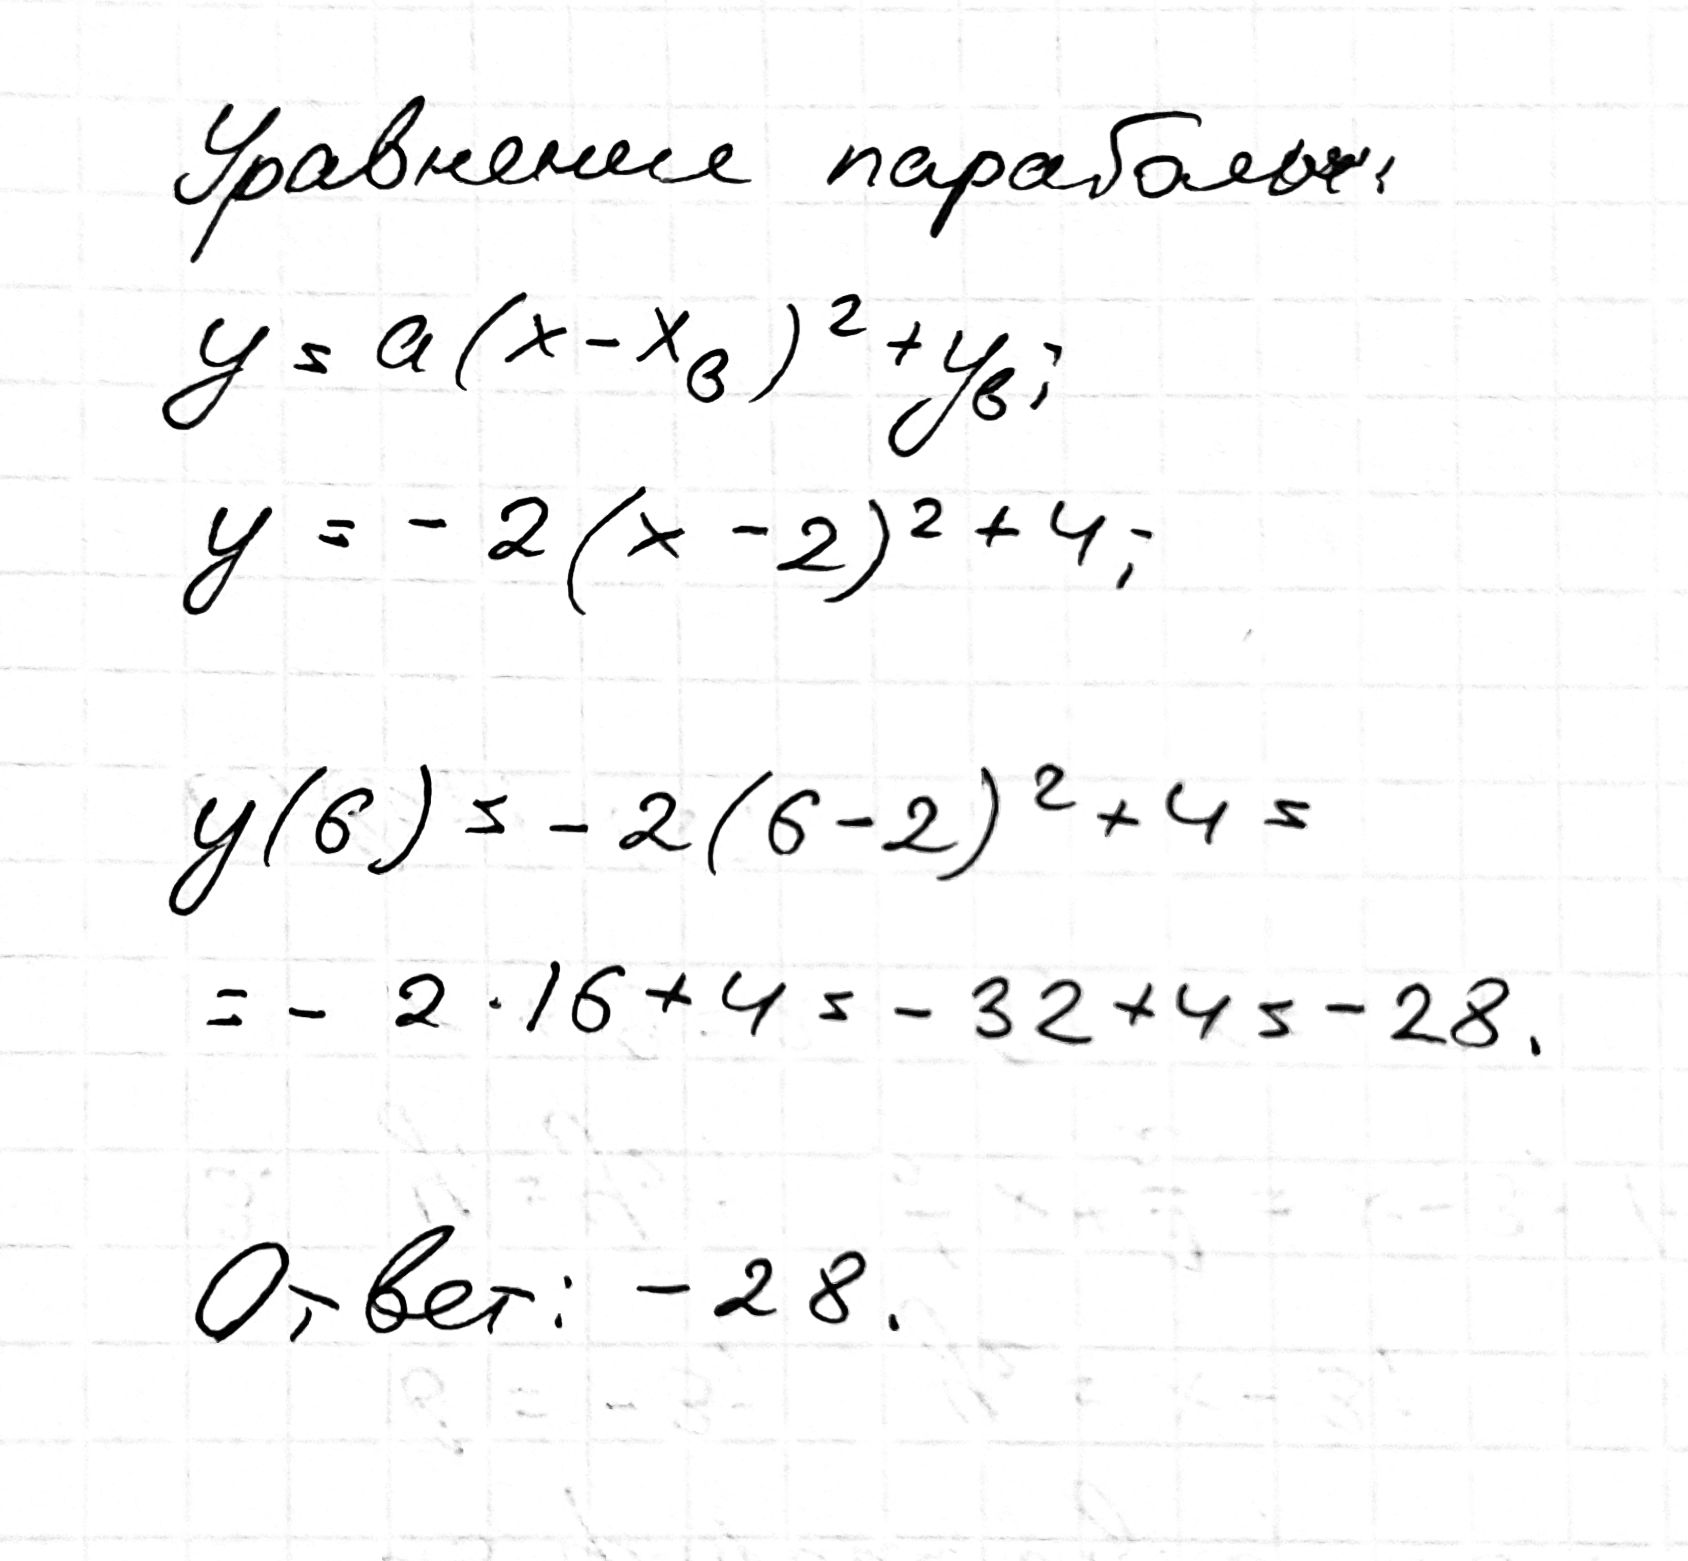 Уравнение параболы:
y = a(x - xв)² + yв;
y = - 2(x - 2)² + 4;
y(6) = - 2(6 - 2)² + 4 =
= - 2 · 16 + 4 = - 32 + 4 = - 28.
Ответ: - 28.